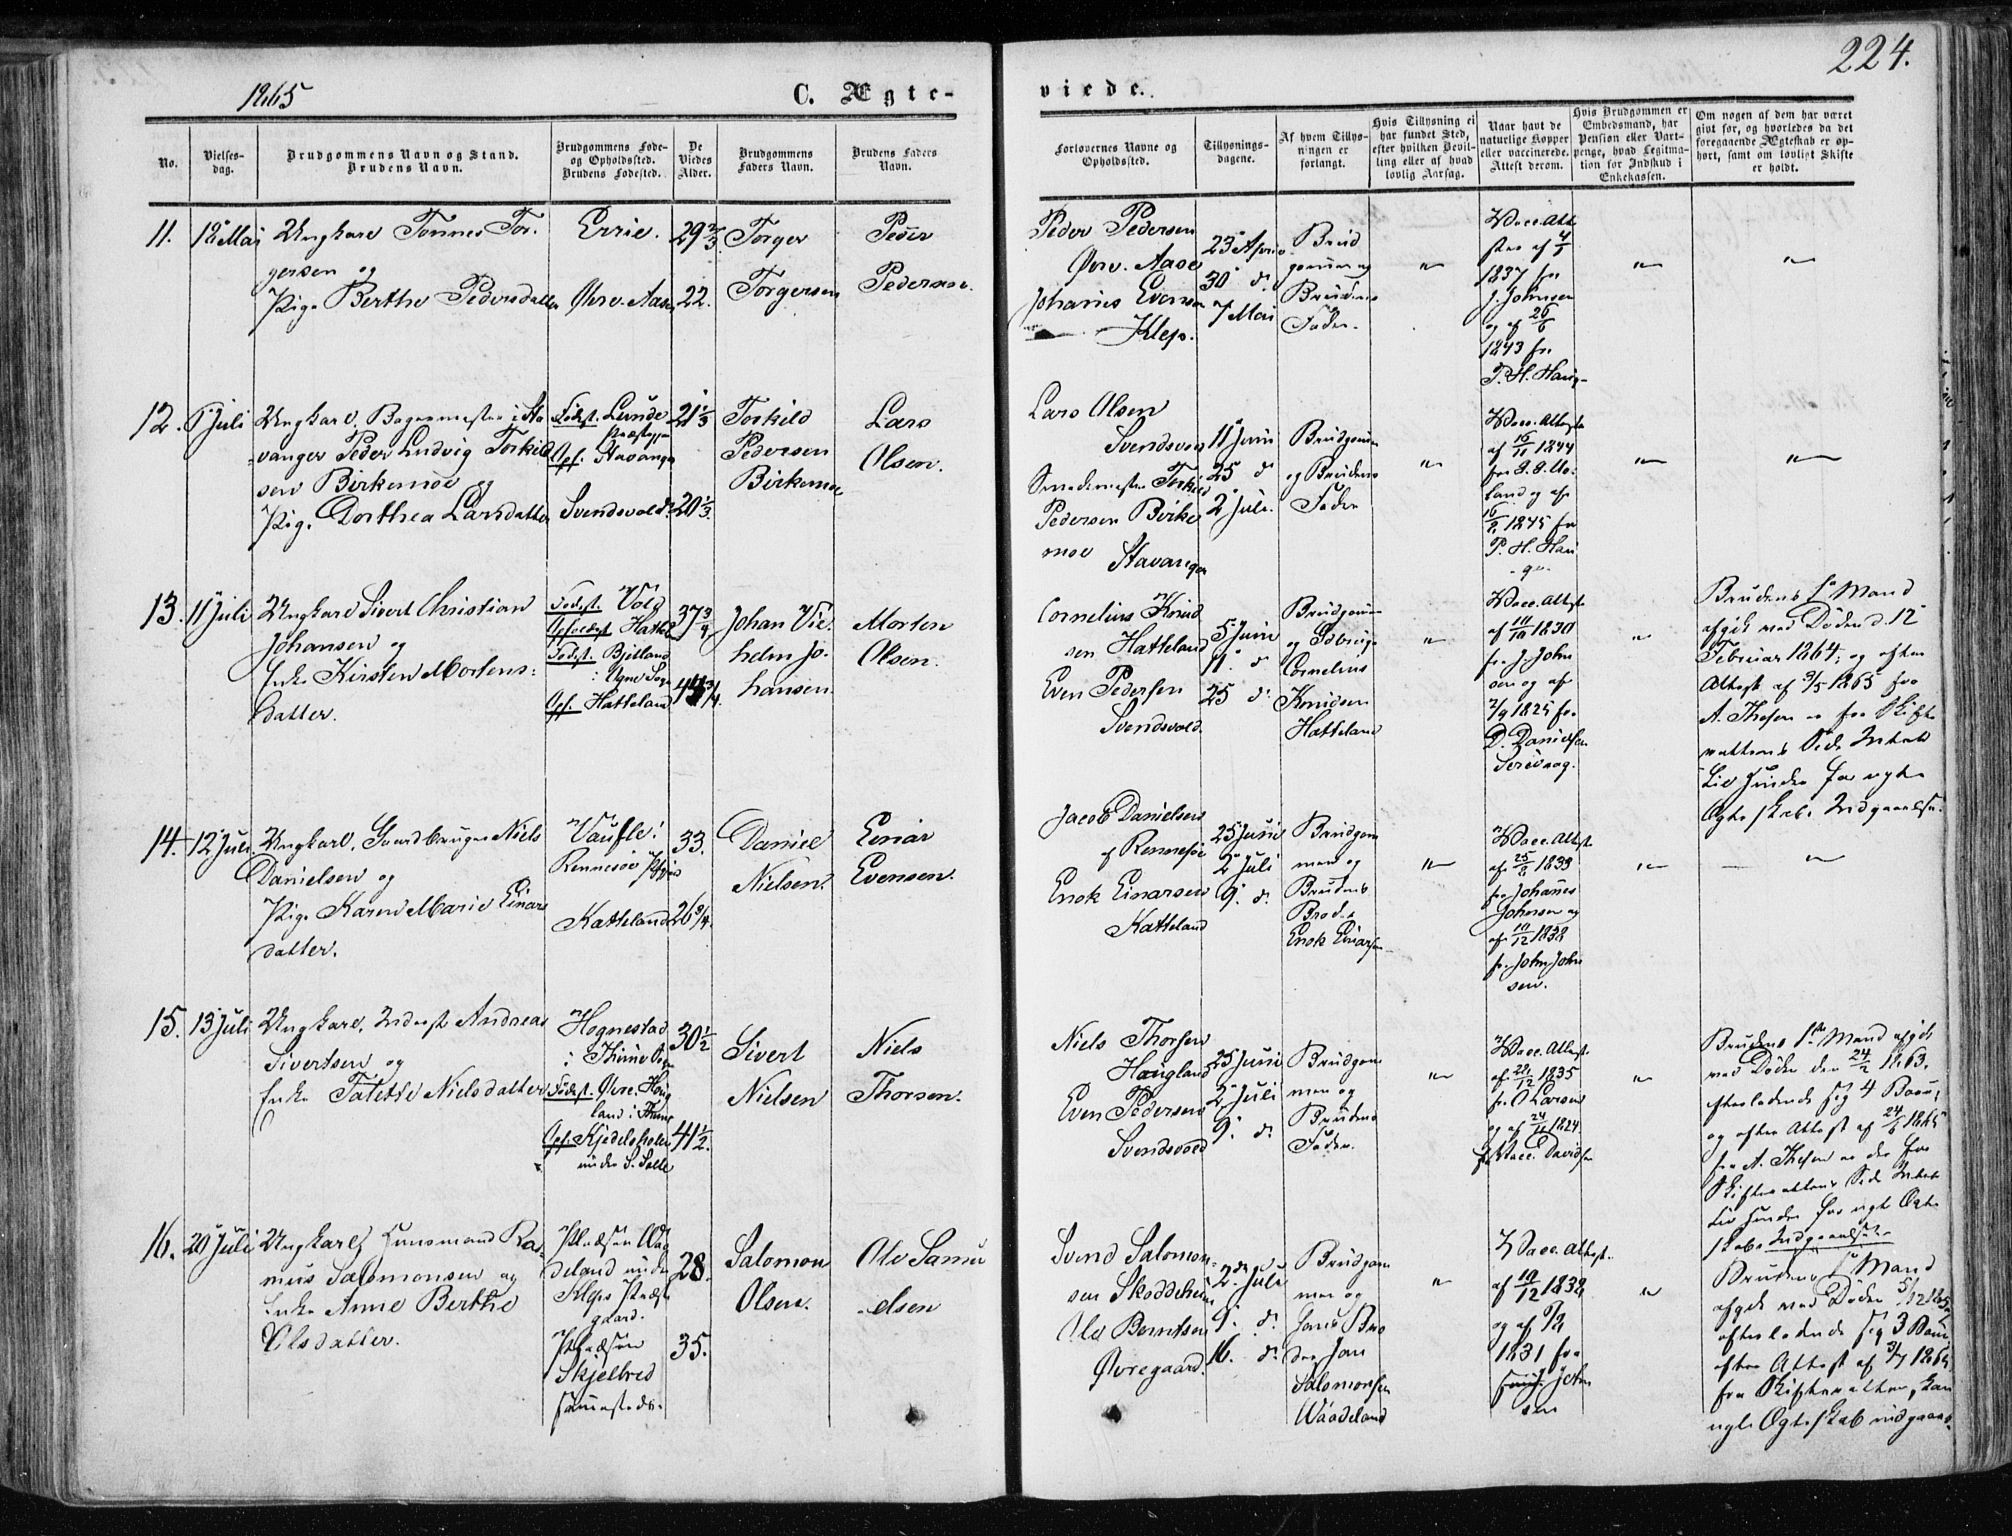 224.
1865
C. Ægte-
viede.
No.
Vielses-
dag.
Brudgommens Navn og Stand.
Brudens Navn.
Brudgommens Føde-
og Opholdssted.
Brudens Fødested.
De
Viedes
Alder.
Brudgommens
Faders Navn.
Brudens Faders
Navn.
Forlovernes Navne og
Opholdssted.
Tillysnings-
dagene.
Af hvem Tillys-
ningen er
forlangt.
Hvis Tillysning ei
har fundet Sted,
efter hvilken Bevil-
ling eller af hvad
lovlig Aarsag.
Naar havt de
naturlige Kopper
eller vaccinerede.
Attest derom.
Hvis Brudgommen er
Embedsmand, har
Pension eller Vart-
penge, hvad Legitima-
tion for Indskud i
Enkekassen.
Om nogen af dem har været
gift før, og hvorledes da det
foregaaende Ægteskab er op-
hørt, samt om lovligt Skifte
er holdt.
11.
12 Mai
Ungkarl Tønnes Tor-
gersen og
Pige Berthe Pedersdatter
Errie.
Øvre. Aase
29 2/3
22.
Torger
Torgersen
Peder
Pedersen.
Peder Pedersen
Øvre. Aase
Johanes Evensen
Klep.
23 April
30 d.
7 Mai
Brud
gommen og
Brudens
Fader.
"
Vacc. Atte
ster af 4/5
1837 fra
J. Johnsen
og af 26/6
1843 fra
P. H. Haug-
"
"
12.
6 Juli
Ungkarl, Bagermester i Sta
vanger Peder Ludvig Torkild
sen Birkemoe og
Pige Dorthea Larsdatter
Fødest. Lunde
Præstegj.
Opf. Stavanger
Svendsvold.
21 1/3
20 1/3.
Torkild
Pedersen
Birkemoe
Lars
Olsen.
Lars Olsen
Svendsvold
Smedemester Torkild
Pedersen Birke
moe Stavanger
11 Juni
25 d
2 Juli.
Brudgom
og Brudens
Fader
"
Vacc. Attester
af 16/11 1844
land og af
1845 fra
P. H. Hau
g.
"
"
13.
11 Juli
Ungkarl Sivert Christian
Johansen og
Enke Kirsten Mortens-
datter.
Fødest. Vold
Opholdst Hattel
Fødest. Bjelland
i Ogne Sogn
Opf. Hatteland
37 3/4
44 3/4.
Johan Vil-
helm Jo-
hansen
Morten
Olsen.
Cornelius Knud
sen Hatteland
Even Pedersen
Svendsvold.
5 Juni
11. d
25 d.
Brudgom
og
Cornelius
Knudsen
Hatteland
"
Vacc. Attest
af 11/10 1830
fr. J. John
sen og af
2/9 1825 fr.
D. Danielsen
"
Brudens 1e Mand
afgik ved Døden d. 12
Februar 1864, og efter
Attest af 3/5 1865 fra
A. Thesen er fra Skifte
rettens Side Intet
til Hinder for nyt
Ægteskabs Indgaaelse.
14.
12 Juli
Ungkarl, Gaardbruger Niels
Danielsen og
Pige Karen Marie Einars
datter.
Vaule i
Rennesøe Præstegj.
Katteland
33.
26 3/4.
Daniel
Nielsen.
Einar
Evensen.
Jacob Danielsen
f Rennesøe
Enok Einarsen
Katteland
25 Juni
2 Juli
9. d.
Brudgom
men og
Brudens
Broder
Enok Einarsen
"
Vacc. Attest
af 25/8 1833
fr. Johanes
Johnsen og
af 10/12 1838
fr. John John
sen.
"
"
15.
13 Juli
Ungkarl, Inderst Andreas
Sivertsen og
Enke Talette Nielsdatter
Hognestad
i Thime Sogn
Fødest. Øvre. Houg
land i Thime
Opf. Kjedelsholen
under S. Salte
30 1/2
41 1/2.
Sivert
Nielsen
Niels
Thorsen.
Niels Thorsen
Haugland
Even Pedersen
Svendsvold
25 Juni
2 Juli
9. d.
Brudgom
men og
Brudens
Fader.
"
Vacc. Attest
af 28/12 1835
fr. O Larsen
og af 24/11 1824
fr. Vacc. Davidsen
"
Brudens 1te Mand afgik
ved Døden den 24/2 1863,
efterladende sig 4 Børn,
og efter Attest af 24/6 1865
fra A. Thesen er der fra
Skifterettens Side Intet
til Hinder for nyt Ægte
skabs Indgaaelse.
16.
20 Juli
Ungkarl, Huusmand Ras
mus Salomonsen og
Enke Anne Berthe
Olsdatter.
Pladsen Waa
deland under
Kleps Præste
gaard.
Pladsen
Skjelbred
sammesteds.
28.
35.
Salomon
Olsen.
Ole Samu
elsen
Svend Salomon-
sen Skaddeheim
Ole Berntsen
Øvregaard.
2. Juli
9. d.
16. d.
Brudgom
men og
hans Bro
der Jan
Salomonsen
Waadeland
"
Vacc. Attest.
af 10/12 1838
og af
1831 fra
John
sen
"
Brudens 1te Mand
afgik ved Døden 5/12 1862
efterladende sig 3 Børn,
efter Attest af 3/7 1865
fra Skifteretten, kan
nyt Ægteskab indgaaes.